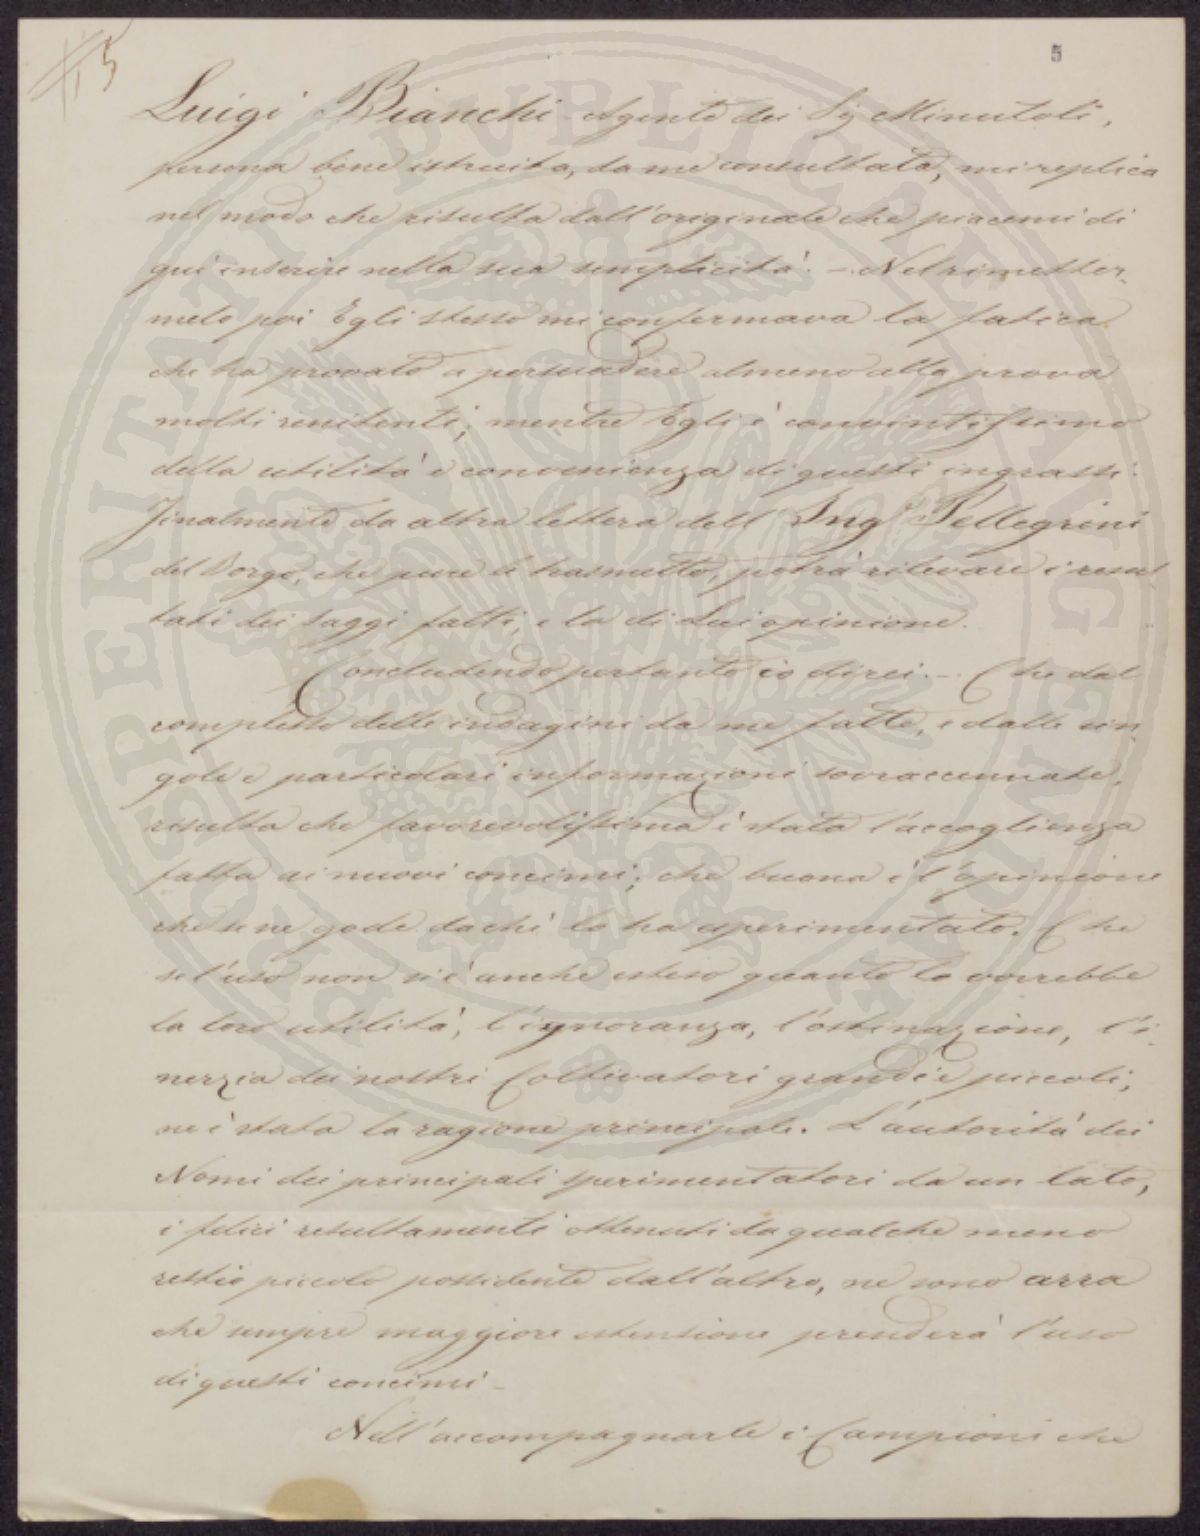 5
Luigi Bianchi Agente dei Sig Minutoli,
persona bene istruita, da me consultata, mi replica
nel modo che risulta dall'originale che piacemi di
qui inserire nella sua semplicità. - Nel rimetter-
melo poi Egli stesso mi confermava la fatica
che ha provato a persuadere almeno alla prova
molti renitenti; mentre Egli è convintissimo
della utilità e convenienza di questi ingrassi.
Finalmente da altra lettera dell'Ing Pellegrini
del Borgo, che pure le trasmetto, potrà rilevare i resul
tati dei saggi fatti, e la di Lui opinione.
Concludendo pertanto io direi. - Che dal
complesso delle indagini da me fatte, e dalle sin
gole e particolari informazioni sovraccennate,
risulta che favorevolissima è stata l'accoglienza
fatta ai nuovi concimi; che buona è l'opinione
che se ne gode da chi lo ha esperimentato. Che
se l'uso non si è anche esteso quanto lo vorrebbe
la loro utilità, l'ignoranza, l'ostinazione, l'i-
nerzia dei nostri Coltivatori grandi e piccoli,
ne è stata la ragione principale. L'autorità dei
Nomi dei principali sperimentatori da un lato,
i felici resultamenti ottenuti da qualche meno
restio piccolo possidente dall'altro, ne sono arra
che sempre maggiore estensione prenderà l'uso
di questi concimi -
Nell'accompagnarle i Campioni che
PROSPERITATI PVBLICAE AVGENDAE